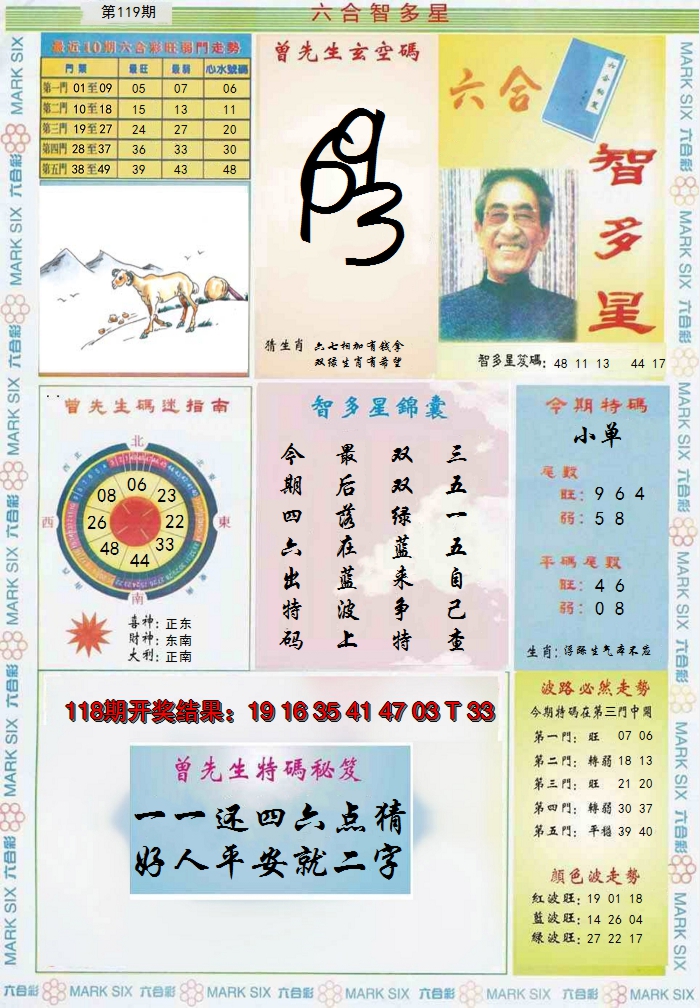 第119期
六合智多星
最近10期六合彩旺弱門走勢
門票 最旺 最弱 心水號碼
第一門 01至09 05 07 06
第二門 10至18 15 13 11
第三門 19至27 24 27 20
第四門 28至37 36 33 30
第五門 38至49 39 43 48
曾先生玄空碼
猜生肖 六七相加有钱拿
双绿生肖有希望
六合
智多星
智多星笈碼: 48 11 13 44 17
曾先生碼迷指南
北
東
南
西
06
23
22
33
44
48
26
08
喜神: 正东
财神: 东南
大利: 正南
智多星錦囊
三五一五自己查
双双绿蓝来争特
最后落在蓝波上
今期四六出特码
今期特碼
小单
尾數
旺: 9 6 4
弱: 5 8
平碼尾數
旺: 4 6
弱: 0 8
生肖:
118期开奖结果: 19 16 35 41 47 03 T 33
曾先生特碼秘笈
一一还四六点猜
好人平安就二字
波路必然走勢
今期特碼在第三門中開
第一門: 旺 07 06
第二門: 轉弱 18 13
第三門: 旺 21 20
第四門: 轉弱 30 37
第五門: 平穩 39 40
顏色波走勢
紅波旺: 19 01 18
藍波旺: 14 26 04
綠波旺: 27 22 17
六合彩 MARK SIX 六合彩 MARK SIX 六合彩 MARK SIX 六合彩 MARK SIX 六合彩 MARK SIX